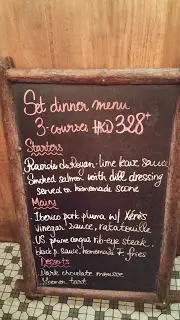 Set dinner menu
3-courses HKD 328+
Starters
Raviole du Royan - lime leave sauce
Smoked salmon with dill dressing
served on homemade scone
Mains
Iberico pork pluma w/ Xérès
vinegar sauce, ratatouille
US prime angus rib-eye steak
black p. sauce, homemade F. fries
Desserts
Dark chocolate mousse
tart